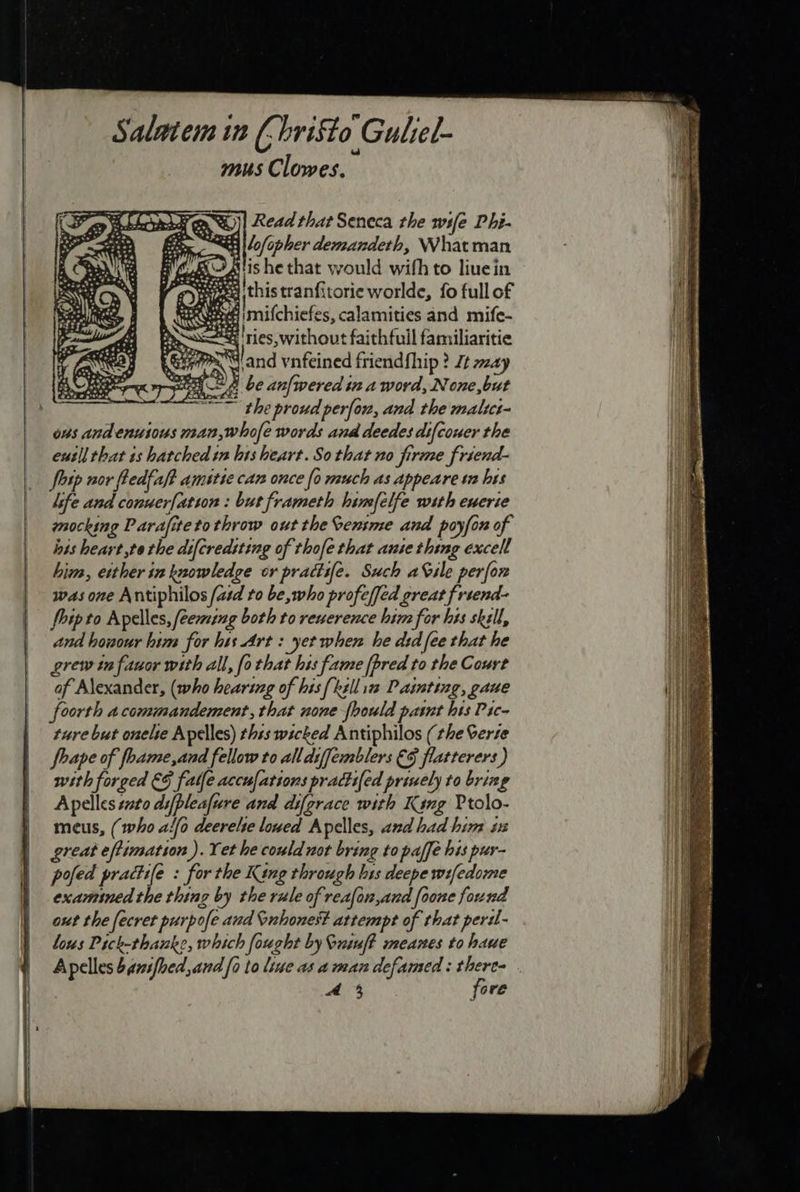 Salutem in Christo Guliel-
mus Clowes.
I Read that Seneca the wise Phi-
losopher demandeth, What man
is he that would wish to liue in
this transitorie worlde, so full of
mischiefes, calamities and mise-
ries, without faithfull familiaritie
and vnfeined friendship? It may
be answered in a word, None, but
the proud person, and the malici-
ous and enuious man, whose words and deedes discouer the
euill that is hatched in his heart. So that no firme friend-
ship nor stedfast amitie can once so much as appeare in his
life and conuersation: but frameth himselfe with euerie
mocking Parasite to throw out the venime and poyson of
his heart, to the discrediting of those that anie thing excell
him, either in knowledge or practise. Such a vile person
was one Antiphilos said to be, who professed great friend-
ship to Apelles, seeming both to reuerence him for his skill,
and honour him for his Art: yet when he did see that he
grew in fauor with all, so that his fame spred to the Court
of Alexander, (who hearing of his skill in Painting, gaue
foorth a commandement, that none should paint his Pic-
ture but onelie Apelles) this wicked Antiphilos (the verie
shape of shame, and fellow to all dissemblers & flatterers)
with forged & false accusations practised priuely to bring
Apelles into displeasure and disgrace with King Ptolo-
meus, (who also deerelie loued Apelles, and had him in
great estimation). Yet he could not bring to passe his pur-
posed practise: for the King through his deepe wisedome
examined the thing by the rule of reason, and soone found
out the secret purpose and vnhonest attempt of that peril-
lous Pick-thanke, which sought by vniust meanes to haue
Apelles banished, and so to liue as a man defamed: there-
A 3 fore